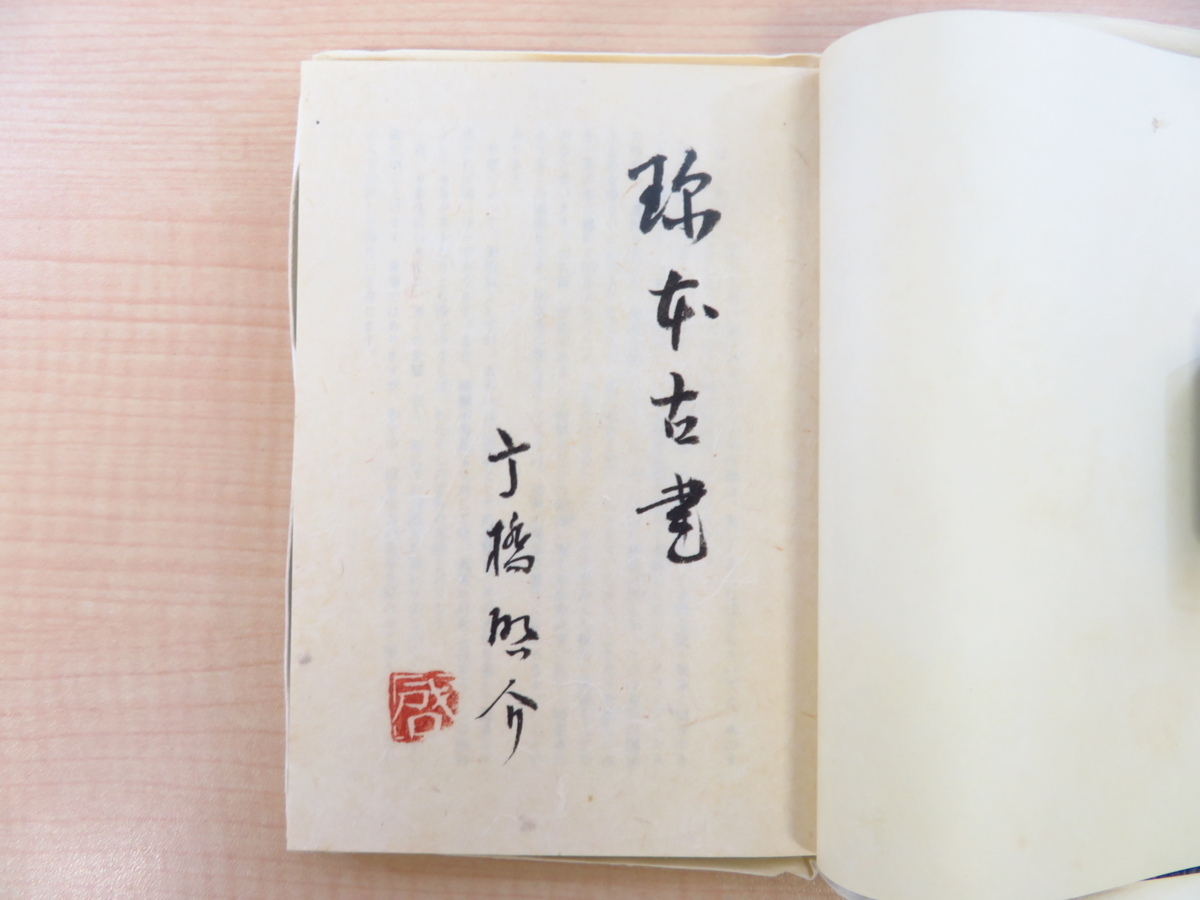 珎本古書
高橋啓介
啓